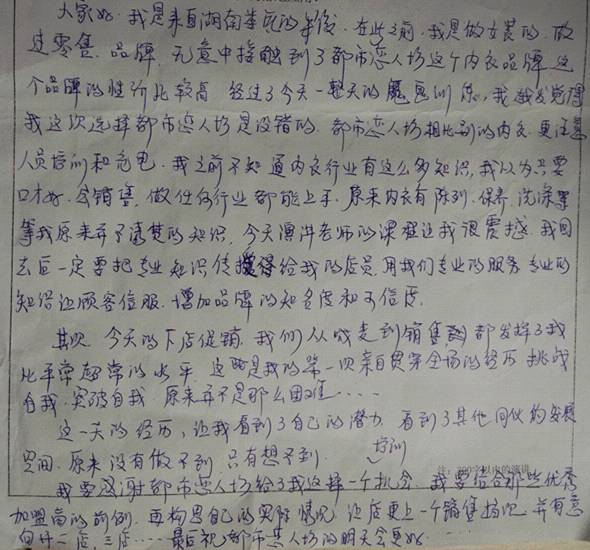 大家好、我是来自湖南娄底的年俊、在此之前、我是做女装的、做
过零售、品牌、无意中接触到了都市恋人坊这个内衣品牌 这
个品牌的性价比较高 经过了今天一整天的魔鬼训练，我发觉得
我这次选择都市恋人坊是没错的、都市恋人坊相比别的内衣、更注意
人员培训和充电、我之前不知道内衣行业有这么多知识，我以为只要
口才好、会销售，做任何行业都能上手、原来内衣有陈列、保养、洗涤等
等我原来弄不清楚的知识，今天 老师的课程让我很震撼、我回
去后一定要把专业知识传 给我的店员 用我们专业的服务 专业的
知识让顾客信服、增加品牌的知名度和可信度、
其次 今天的下店促销、我们从 走到销售 都发挥了我
比平常超常的水平 这 是我的第一次亲自贯穿全场的经历 挑战
自我、突破自我 原来并不是那么困难····
这一天的经历，让我看到了自己的潜力 看到了其他同伙的发展
空间、原来没有做不到 只有想不到
培训
注：
我要感谢都市恋人坊给了我这样一个机会 我要结合那些优秀
加盟商的前例、再构思自己的实际情况 让店更上一个销售档次 并有意
向开二店，三店····最后祝都市恋人坊的明天会更好